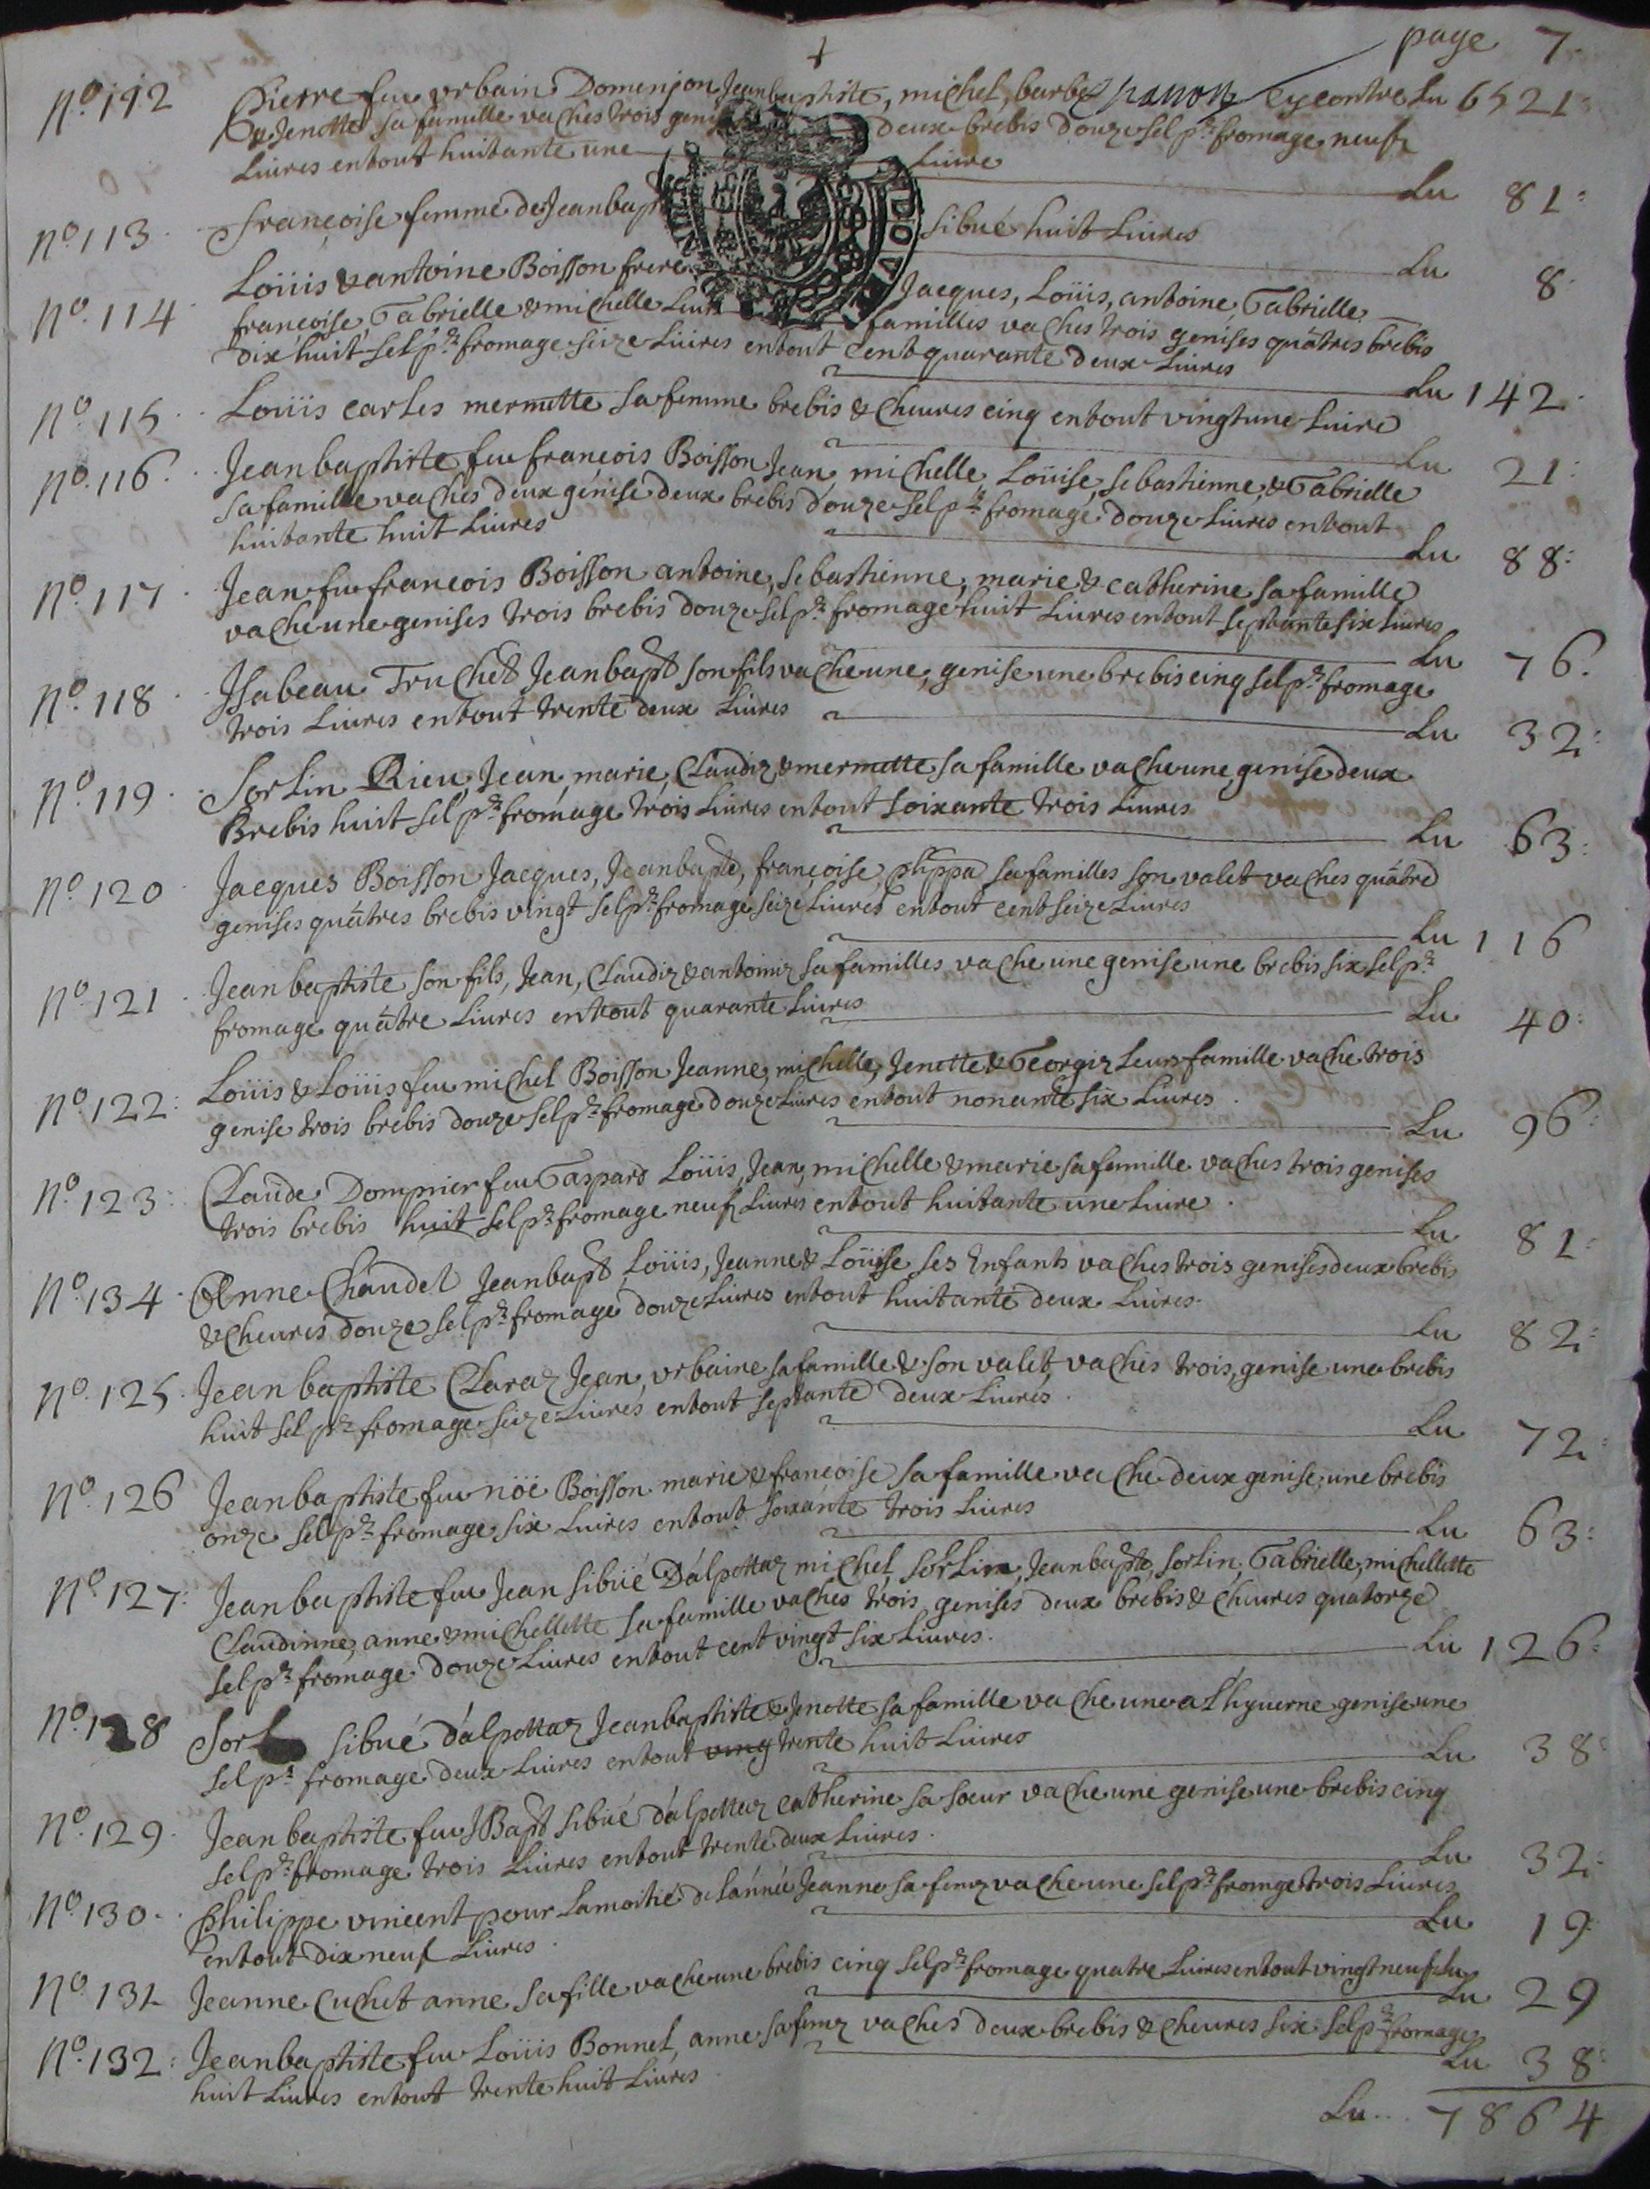 page 7.
cy contre Lu 6521:
N.º 112 Pierre feu urbain Domenjon Jean baptiste, michel, barbe
& Jenotte sa famille vaches trois deux brebis douze sel p.r fromage neuf
Livres en tout huitante une Livre
Lu 81:
N.º 113. francoise femme de Jean bap sibué huit Livres
Lu 8.
N.º 114. Loüis & antoine Boisson frere Jacques, Loüis, antoine, Gabrielle
francoise, Gabrielle & michelle Leur familles vaches trois genises quâtres brebis
dix huit sel p.r fromage seize Livres en tout Cent quarante deux Livres
Lu 142.
N.º 115. Loüis carles mermette sa femme brebis & Cheures cinq en tout vingt une Livre
Lu 21:
N.º 116. Jean baptiste feu francois Boisson Jean, michelle, Loüise, sebastienne, & Gabrielle
sa famille vaches deux génise deux brebis douze sel p.r fromage douze Livres en tout
huitante huit Livres
Lu 88:
N.º 117. Jean feu francois Boisson antoine, sebastienne, marie & catherine sa famille
vache une genises trois brebis douze sel p.r fromage huit Livres en tout septante six Livres
Lu 76.
N.º 118. Jsabeau Truchet Jean bapt son fils vache une, genise une brebis cinq sel p.r fromage
trois Livres en tout trente deux Livres
Lu 32:
N.º 119. Sorlin Rieu, Jean, marie, Claudiz & mermette sa famille vache une genise deux
Brebis huit sel p.r fromage trois Livres en tout soixante trois Livres
Lu 63:
N.º 120. Jacques Boisson Jacques, Jean bapte, françoise, phippa sa familles son valet vaches quâtre
genises quâtres brebis vingt sel p.r fromage seize Livres en tout cent seize Livres
Lu 116
N.º 121. Jean baptiste son fils, Jean, Claudiz & antoiniz sa familles vache une genise une brebis six sel p.r
fromage quâtre Livres en tout quarante Livres
Lu 40:
N.º 122: Loüis & Loüis feu michel Boisson Jeanne, michelle, Jenette & Georgiz Leur famille vache trois
genise trois brebis douze sel p.r fromage douze Livres en tout nonante six Livres.
Lu 96:
N.º 123: Claude Dompnier feu Gaspard Loüis, Jean, michelle & marie sa famille vaches trois genises
trois brebis huit sel p.r fromage neuf Livres en tout huitante une Livre.
Lu 81:
N.º 134. Anne Chaudet Jean bapt Loüis, Jeanne & Loüise ses Enfants vaches trois genises deux brebis
& cheures douze sel p.r fromage douze Livres en tout huitante deux Livres.
Lu 82:
N.º 125. Jean baptiste Claraz Jean, urbaine sa famille & son valet, vaches trois, genise une brebis
huit sel p.r fromage seize Livres en tout septante deux Livres.
Lu 72:
N.º 126 Jean baptiste feu nöe Boisson marie & françoise sa famille vache deux genise, une brebis
onze sel p.r fromage six Livres en tout soixante trois Livres
Lu 63:
N.º 127: Jean baptiste feu Jean sibüé Dalpettaz michel, sorlin, Jean bapte, sorlin, Gabrielle, michellette
Claudinne, anne & michellette sa famille vaches trois, genises deux brebis & cheures quatorze
sel p.r fromage douze Livres en tout cent vingt six Livres.
Lu 126:
N.º 128 Sorl sibué dalpettaz Jean baptiste & Jenette sa famille vache une a Lhyuerne genise une
sel p.r fromage deux Livres en tout ving trente huit Livres
Lu 38:
N.º 129. Jean baptiste feu J Bapt sibué dalpettaz catherine sa sœur vache une genise une brebis cinq
sel p.r fromage trois Livres en tout trente deux Livres.
Lu 32:
N.º 130. philippe vincent pour La moitié de Lannéé Jeanne sa femz vache une sel p.r fromge trois Livres
en tout dix neuf Livres.
Lu 19:
N.º 131 Jeanne Cuchet anne sa fille vache une brebis cinq sel p.r fromage quatre Livres en tout vingt neuf Lu
Lu 29
N.º 132: Jean baptiste feu Loüis Bonnel, anne sa femz vaches deux brebis & cheures six sel p.r fromage
huit Livres en tout trente huit Livres
Lu 38:
Lu... 7864